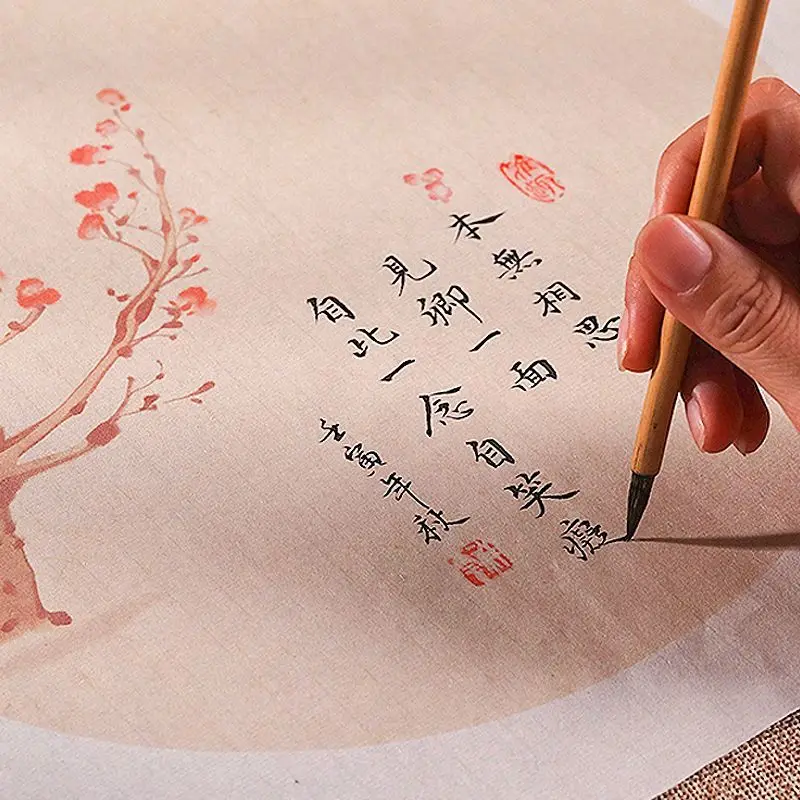 本無相思
見卿一面
自此一念自笑癡
壬寅年秋